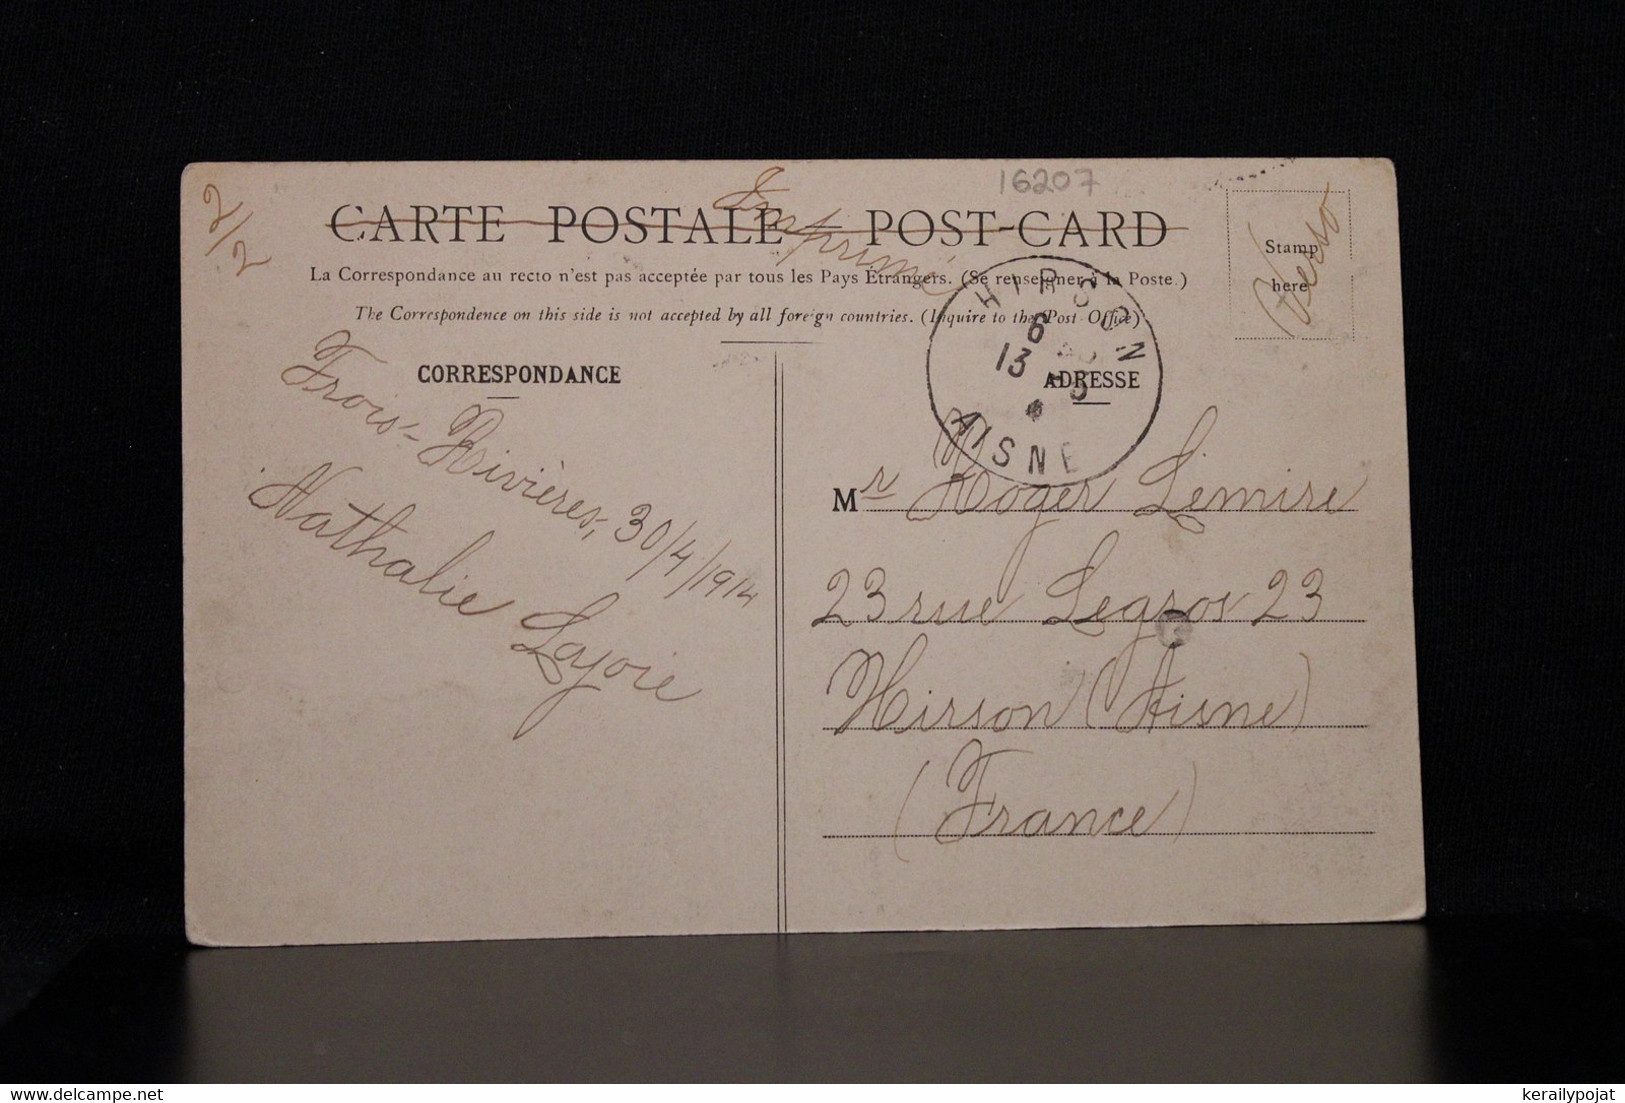 2/2
16207
CARTE POSTALE POST-CARD
Imprimé
Stamp
here
Verso
La Correspondance au recto n'est pas acceptée par tous les Pays Étrangers. (Se renseigner à la Poste.)
The Correspondence on this side is not accepted by all foreign countries. (Inquire to the Post-Office)
HIRSON
6
13
5
AISNE
CORRESPONDANCE
ADRESSE
Trois-Rivières, 30/4/1914
Nathalie Lajoie
Mr Roger Lemire
23 rue Legros 23
Hirson (Aisne)
(France)
kerailypojat